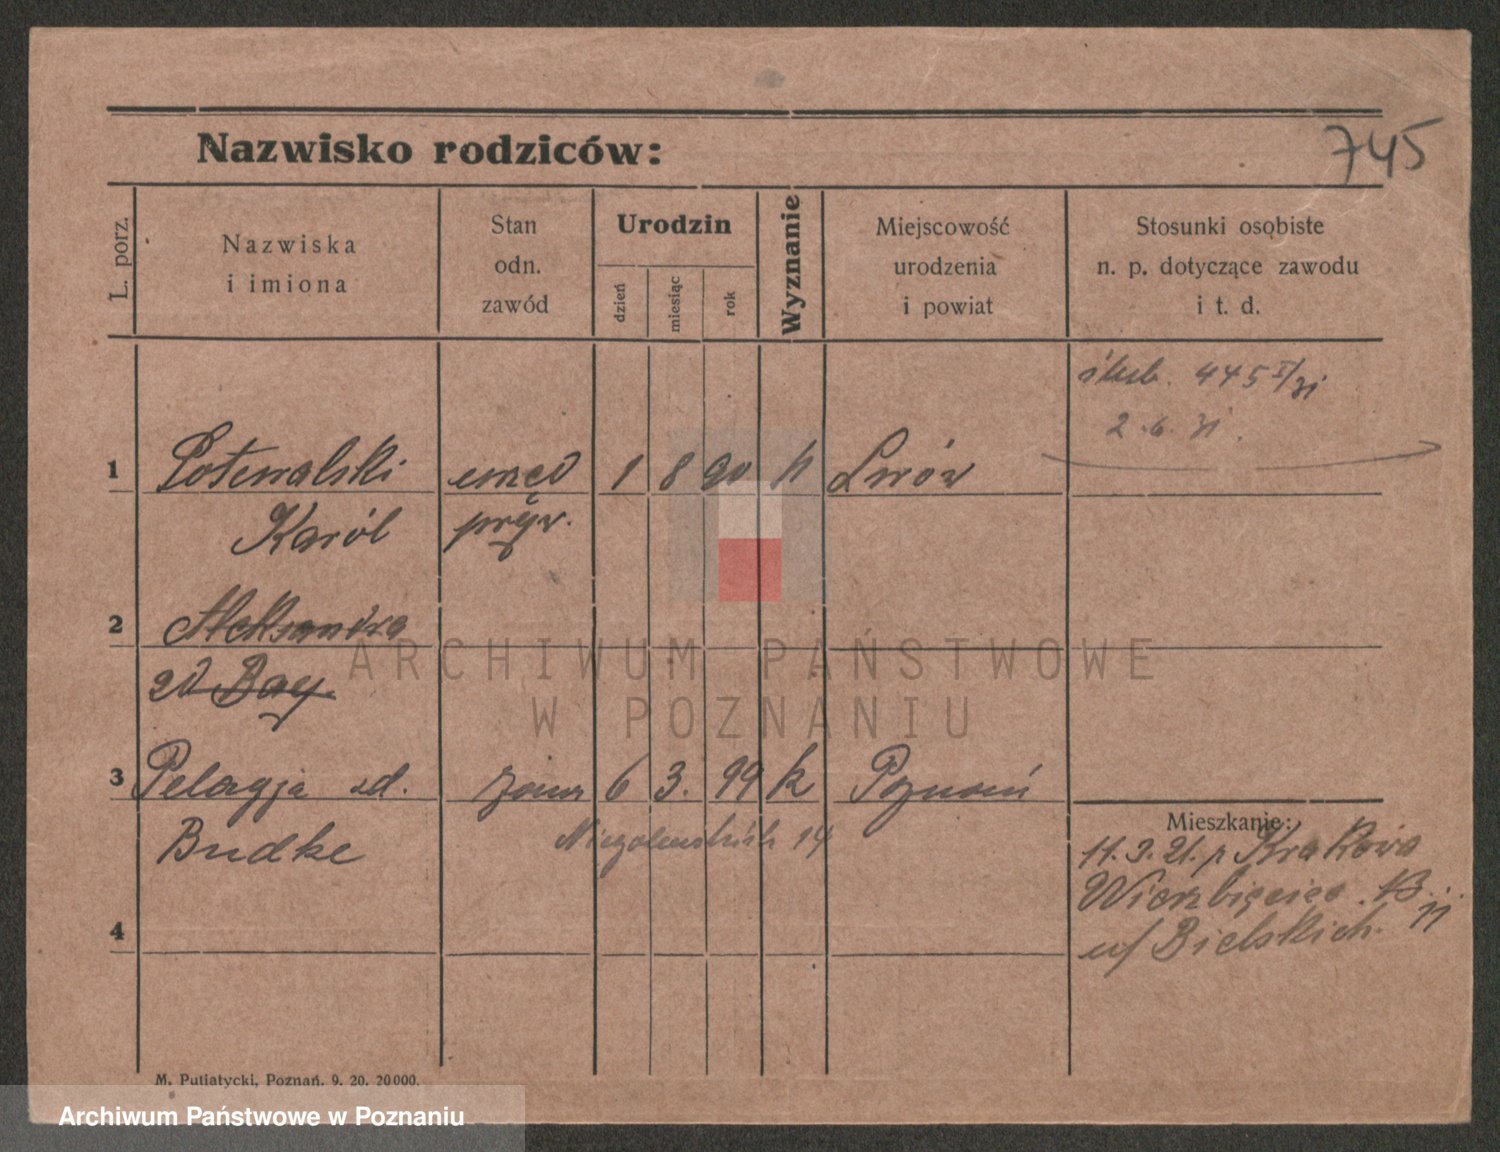 745
Nazwisko rodziców:
L. porz.
Nazwiska
i imiona
Stan
odn.
zawód
Urodzin
dzień
miesiąc
rok
Wyznanie
Miejscowość
urodzenia
i powiat
Stosunki osobiste
n. p. dotyczące zawodu
i t. d.
445 I/31
2.6.31.
1 Potewalski 1 8 90 Lwów
Karól pryw.
2 Aleksandra
zd Bay.
3 Pelagja zd. żona 6 3. 99 k Poznań
Budke Niegolewskich 14
Mieszkanie:
11.3.21. p Krakowa
Wierzbięcice 13.
11
u/ Bielskich.
4
ARCHIWUM PAŃSTWOWE
W POZNANIU
M. Putiatycki, Poznań. 9. 20. 20000.
Archiwum Państwowe w Poznaniu